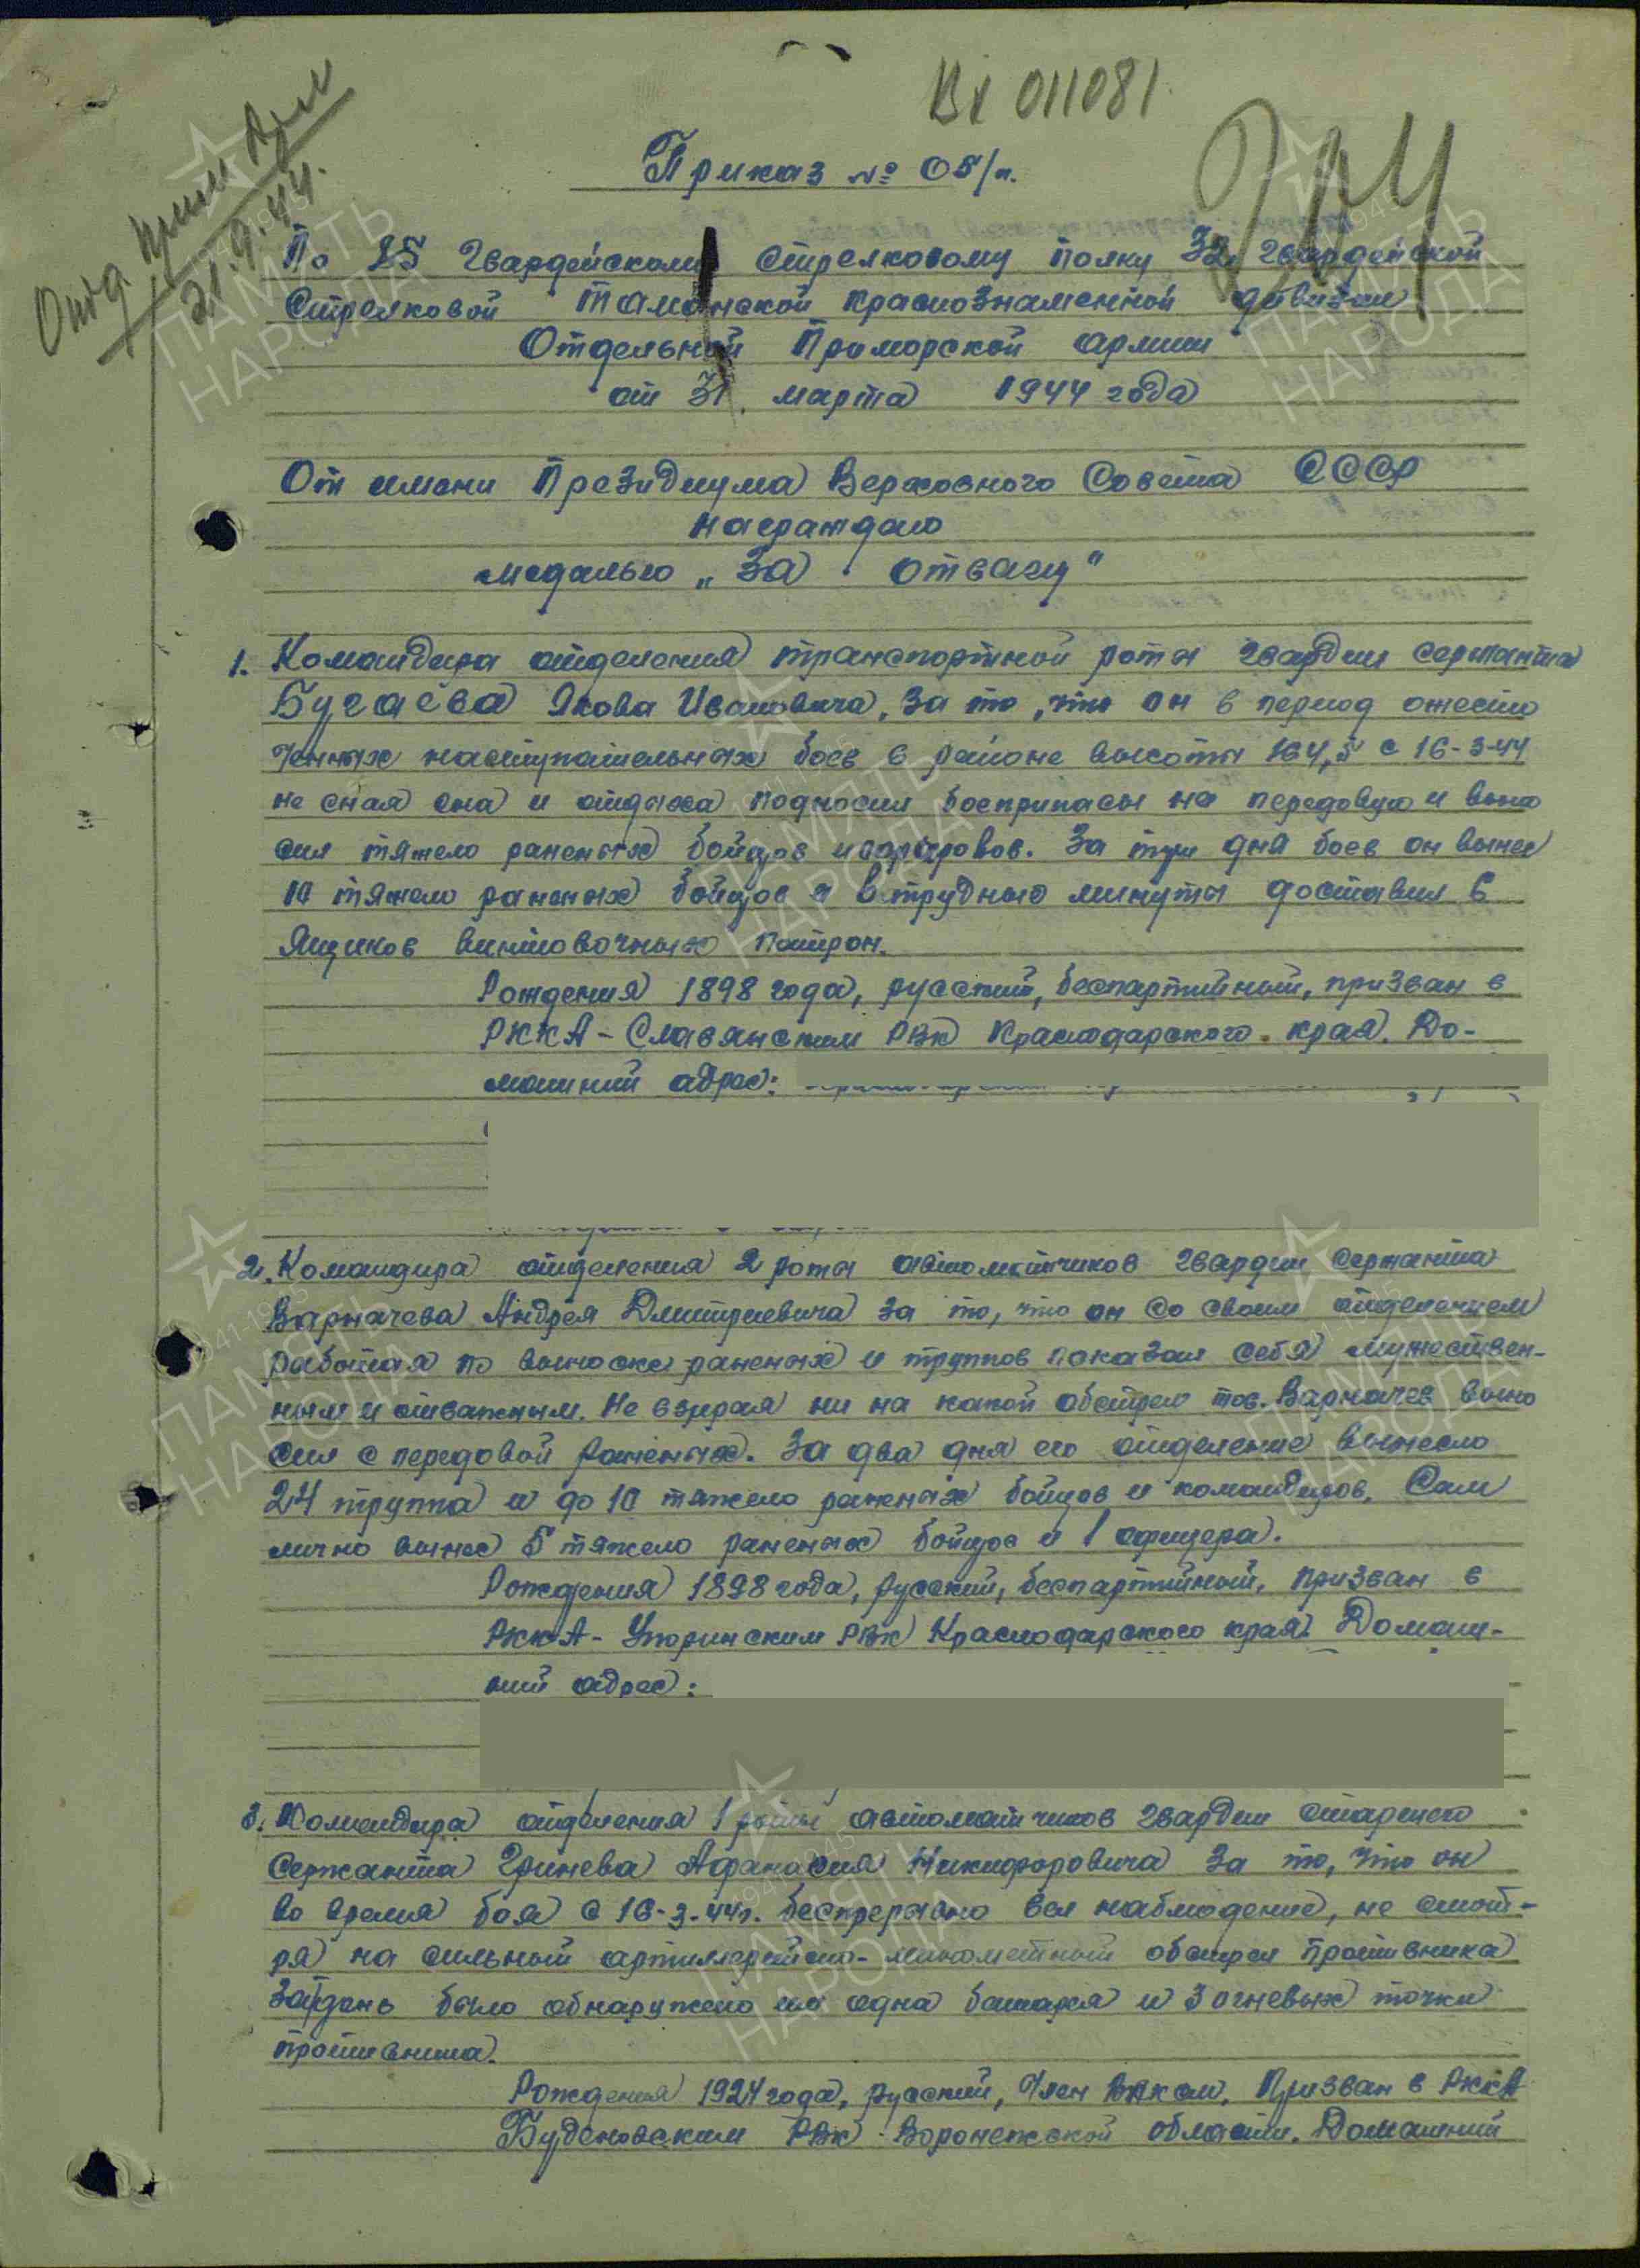 Вх 011081.
Отд.
21.9.44.
Приказ № 05/н.
По 85 Гвардейскому Стрелковому полку 32 Гвардейской
Стрелковой Таманской Краснознаменной дивизии
Отдельной Приморской армии
от 31. марта 1944 года
От имени Президиума Верховного Совета СССР
награждаю
медалью „За отвагу"
1. Командира отделения транспортной роты гвардии сержанта
Бугаева Якова Ивановича, за то, что он в период ожесто
ченных наступательных боев в районе высоты 164,5 с 16-3-44
не зная сна и отдыха подносил боеприпасы на передовую и выно
сил тяжело раненых бойцов и офицеров. За три дня боев он вынес
10 тяжело раненых бойцов и в трудные минуты доставил 6
ящиков винтовочных патрон.
Рождения 1898 года, русский, беспартийный, призван в
РККА - Славянским РВК Краснодарского края. До-
машний адрес:
2. Командира отделения 2 роты автоматчиков гвардии сержанта
Варначева Андрея Дмитриевича за то, что он со своим отделением
работая по выноске раненых и трупов показал себя мужествен-
ным и отважным. Не взирая ни на какой обстрел тов. Варначев выно
сил с передовой раненых. За два дня его отделение вынесло
24 труппа и до 10 тяжело раненых бойцов и командиров. Сам
лично вынес 5 тяжело раненых бойцов и 1 офицера.
Рождения 1898 года, русский, беспартийный, призван в
РККА - Упоринским РВК Краснодарского края. Домаш-
ний адрес:
3. Командира отделения 1 роты автоматчиков гвардии старшего
сержанта Гринева Афанасия Никифоровича за то, что он
во время боя с 16-3-44г. беспрерывно вел наблюдение, не смот-
ря на сильный артиллерийско-минометный обстрел противника
За день было обнаружено им одна батарея и 3 огневых точки
противника.
Рождения 1924 года, русский, Член ВЛКСМ, Призван в РККА
Буденовским РВК Воронежской области. Домашний